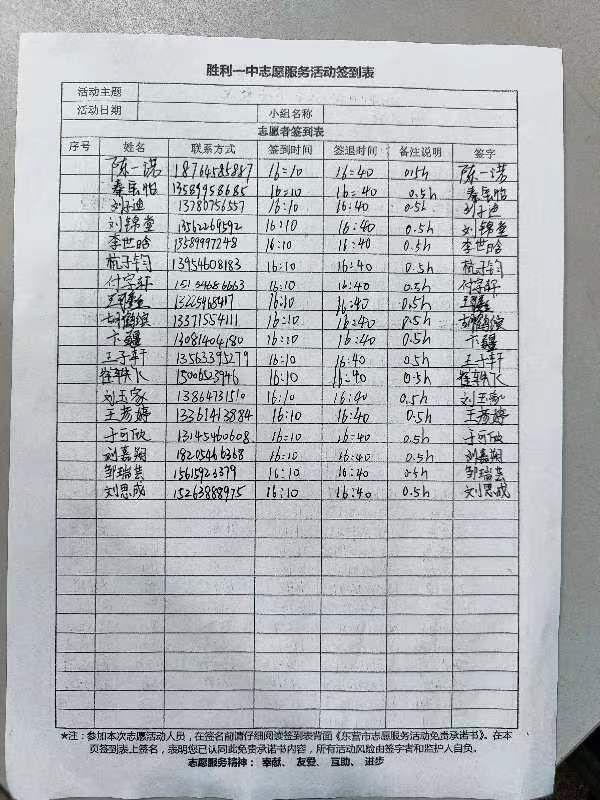 胜利一中志愿服务活动签到表
活动主题
活动日期 小组名称
志愿者签到表
序号 姓名 联系方式 签到时间 签退时间 备注说明 签字
陈一诺 18764585887 16:10 16:40 0.5h 陈一诺
13589958685 16:10 16:40 0.5h
刘子迪 13780756557 16:10 16:40 0.5h 刘子迪
刘锦堂 13562269592 16:10 16:40 0.5h 刘锦堂
李世晗 13589997248 16:10 16:40 0.5h 李世晗
杭子钧 13954608183 16:10 16:40 0.5h 杭子钧
付字轩 15154686663 16:10 16:40 0.5h 付字轩
13225468417 16:10 16:40 0.5h
胡鹤缤 13371554111 16:10 16:40 0.5h 胡鹤缤
卞疆 13081404180 16:10 16:40 0.5h 卞疆
王子轩 13563395279 16:10 16:40 0.5h 王子轩
崔轶飞 15006523946 16:10 16:40 0.5h 崔轶飞
刘玉家 13864731510 16:10 16:40 0.5h 刘玉家
王彦婷 13361413884 16:10 16:40 0.5h 王彦婷
于可欣 13145460608 16:10 16:40 0.5h 于可欣
刘嘉翔 18205466368 16:10 16:40 0.5h 刘嘉翔
邹瑞芸 15615923379 16:10 16:40 0.5h 邹瑞芸
刘思成 15263888975 16:10 16:40 0.5h 刘思成
*注：参加本次志愿活动人员，在签名前请仔细阅读签到表背面《东营市志愿服务活动免责承诺书》。在本
页签到表上签名，表明您已认同此免责承诺书内容，所有活动风险由签字者和监护人自负。
志愿服务精神：奉献、友爱、互助、进步